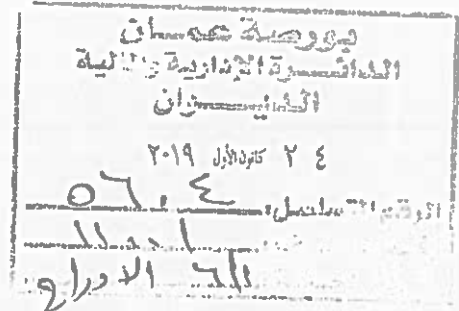 بورصة عمان
الدائرة الإدارية والمالية
الديوان
٢٤ كانون الأول ٢٠١٩
الرقم المتسلسل: ٥٦٠٤
الادراج